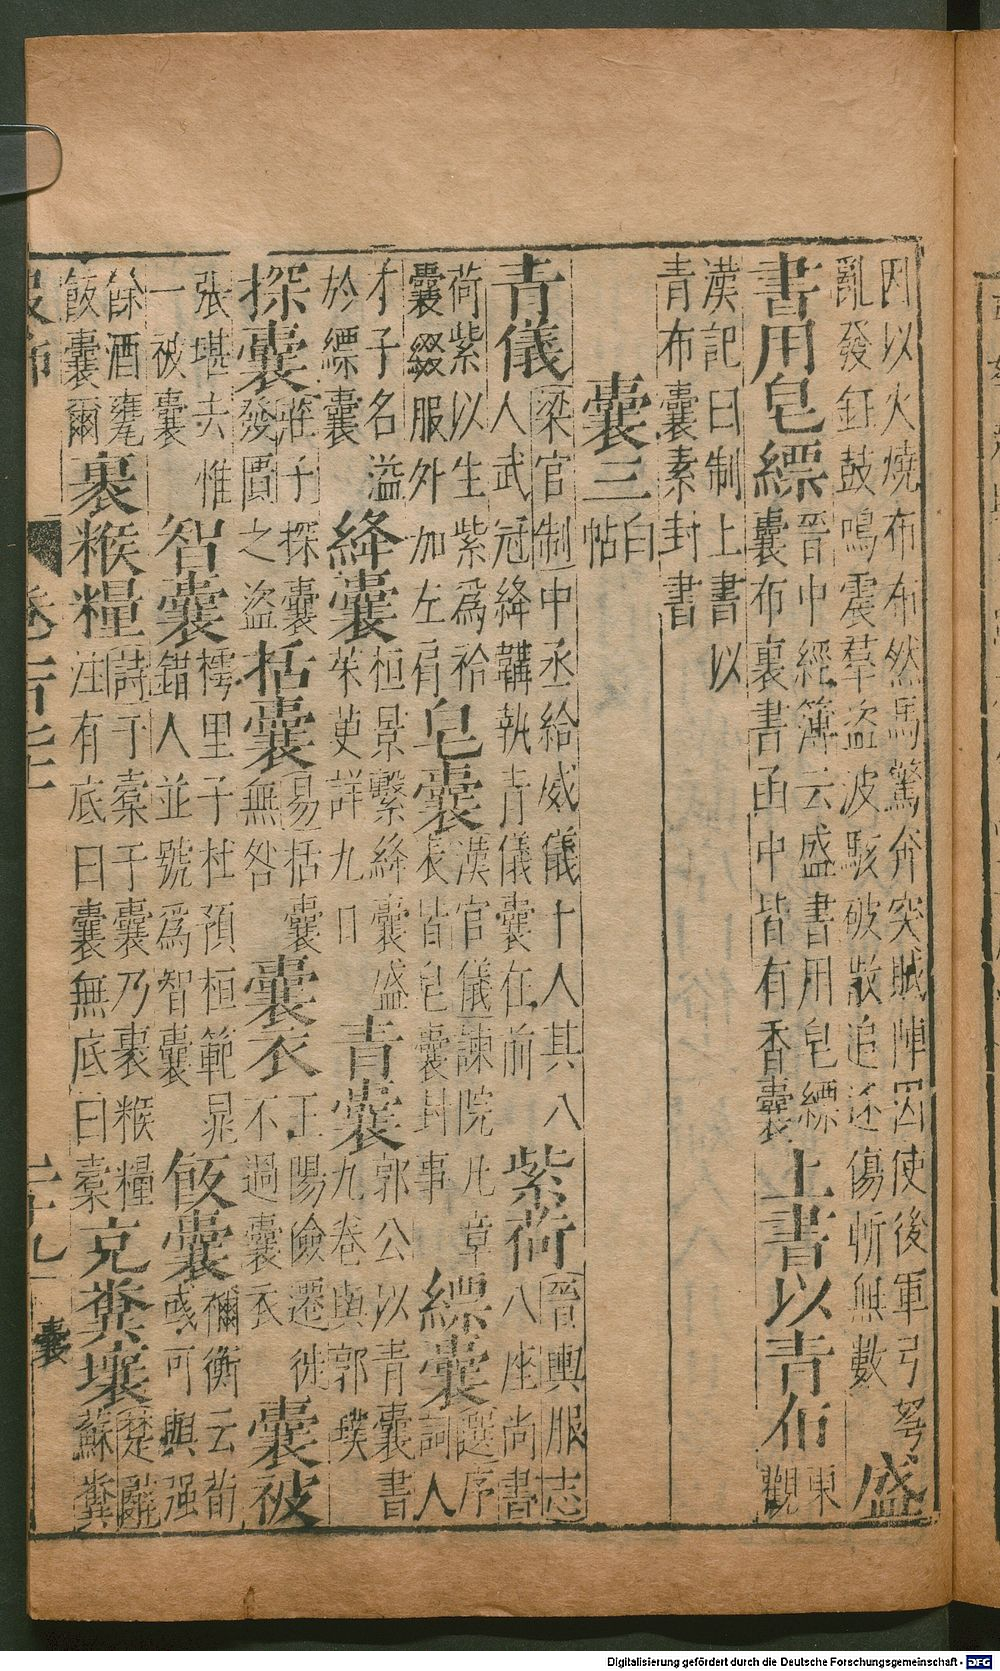 因以火燒布布然馬驚奔突賊陣因使後軍弓弩
亂發鉦鼓鳴震羣盜波駭破散追逐傷斬無數
盛
書用皂縹
晉中經簿云盛書用皂縹
囊布裏書函中皆有香囊
上書以青布
東
觀
漢記曰制上書以
青布囊素封書
囊三
白
帖
青儀
梁官制中丞給威儀十人其八
人武冠絳韝執青儀囊在前
紫荷
晉輿服志
八座尚書
荷紫以生紫為袷
囊綴服外加左肩
皂囊
漢官儀諫院凡章
表皆皂囊封事
縹囊
選序
詞人
才子名溢
於縹囊
絳囊
桓景繫絳囊盛
茱萸詳九日
青囊
郭公以青囊書
九卷與郭璞
探囊
莊子探囊
發匱之盜
括囊
易括囊
無咎
囊衣
王陽險遷徙
不過囊衣
囊被
張堪去惟
一被囊
智囊
樗里子杜預桓範晁
錯人並號為智囊
飯囊
禰衡云荀
彧可與强
餘酒甕
飯囊爾
裹糇糧
詩于橐于囊乃裹糇糧
注有底曰囊無底曰橐
充糞壤
楚辭
蘇糞
服飾
卷一百七十二
二十九
囊
Digitalisierung gefördert durch die Deutsche Forschungsgemeinschaft - DFG